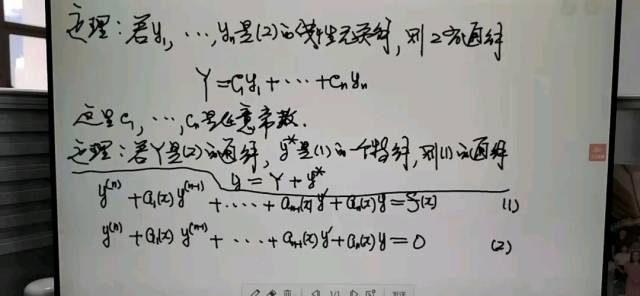 定理：若y₁, ⋯, yₙ是(2)的线性无关解, 则2的通解
Y = C₁y₁ + ⋯ + Cₙyₙ
这里C₁, ⋯, Cₙ是任意常数.
定理：若Y是(2)的通解, y*是(1)的一个特解, 则(1)的通解
y = Y + y*
y⁽ⁿ⁾ + a₁(x)y⁽ⁿ⁻¹⁾ + ⋯ + aₙ₋₁(x)y′ + aₙ(x)y = f(x) (1)
y⁽ⁿ⁾ + a₁(x)y⁽ⁿ⁻¹⁾ + ⋯ + aₙ₋₁(x)y′ + aₙ(x)y = 0 (2)